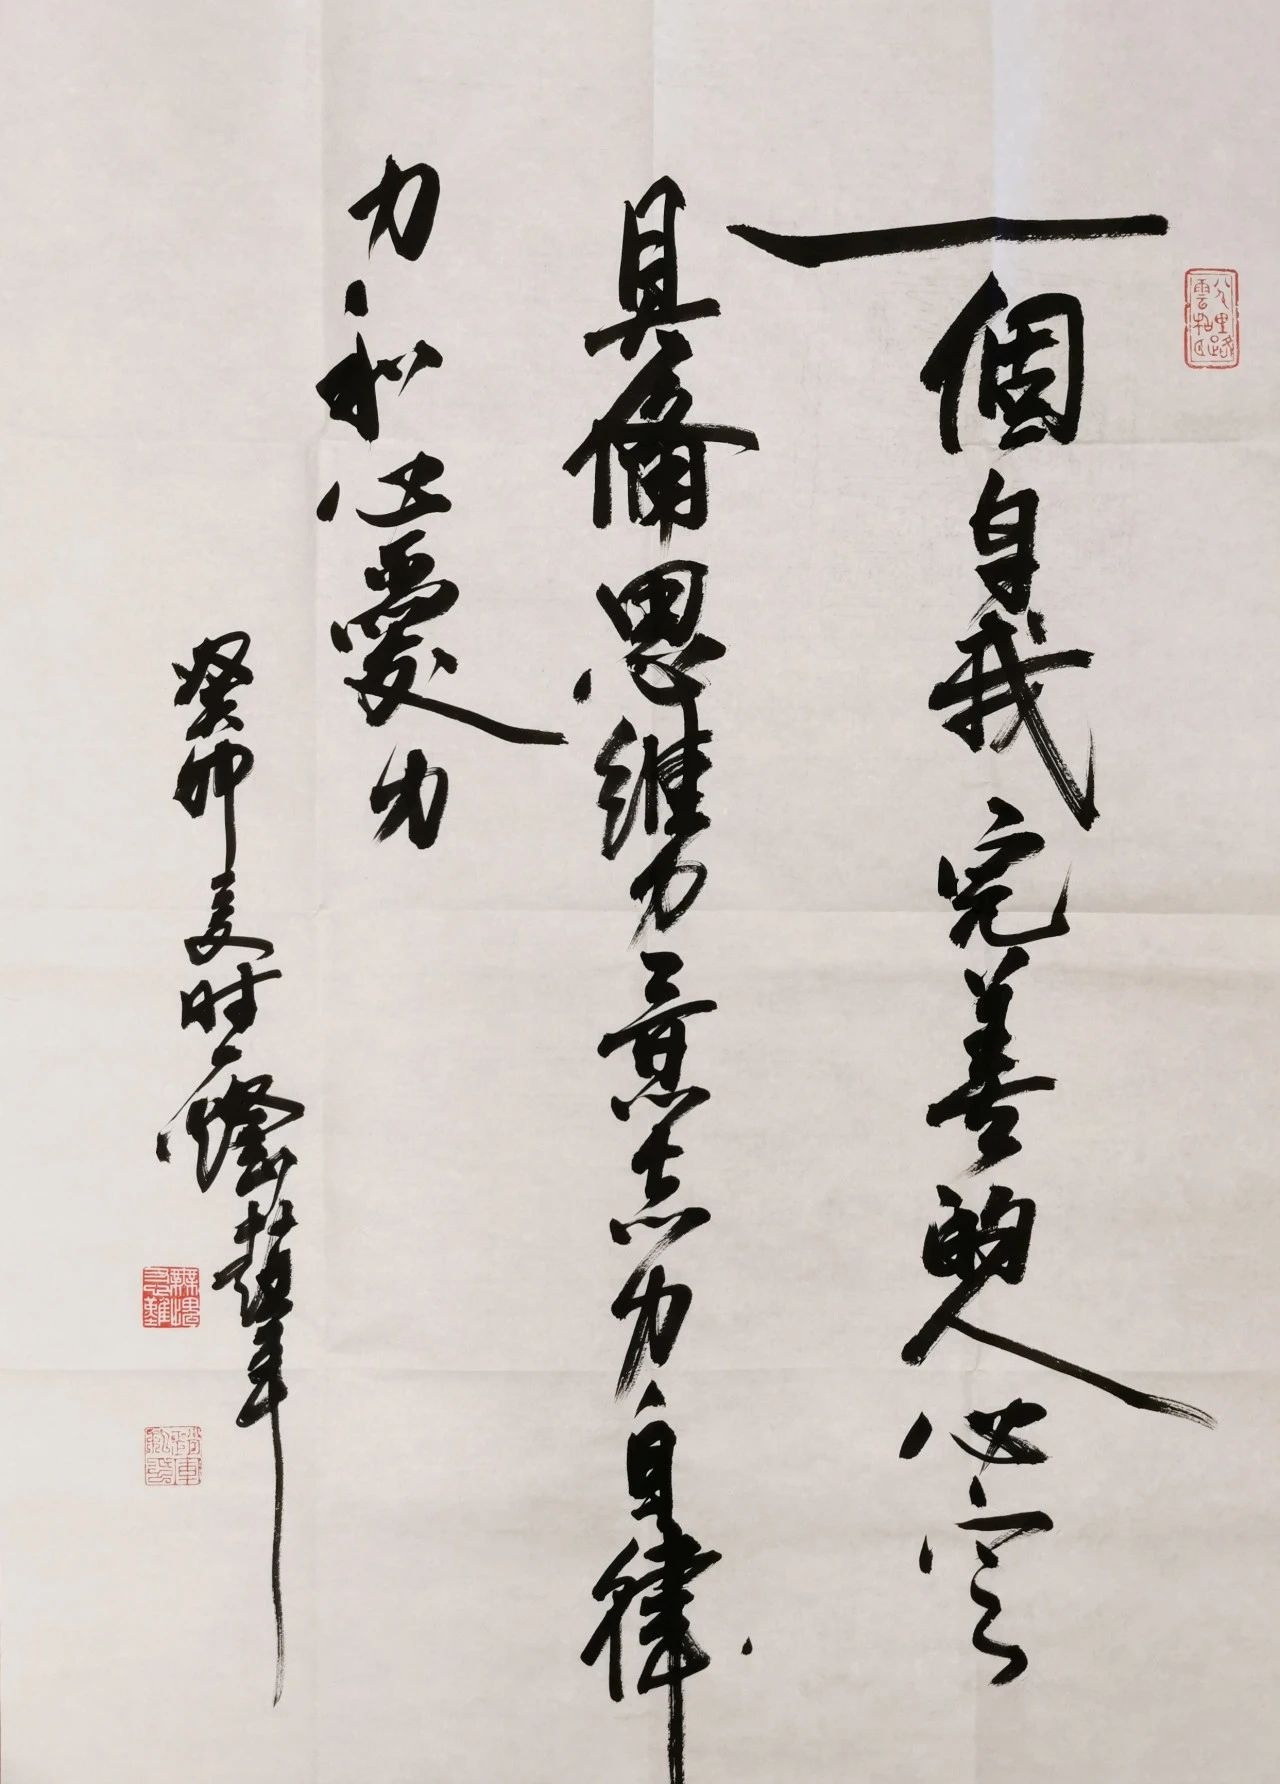 一個自我完善的人必定
具備思維力意志力自律
力和心愛力
癸卯夏时一燈